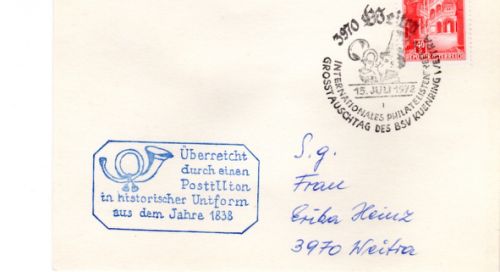 3970 Weitra
15. JULI 1972
1
INTERNATIONALES PHILATELISTENTREFFEN WEITRA
GROSSTAUSCHTAG DES BSV KUENRING
Überreicht
durch einen
Postillion
in historischer Uniform
aus dem Jahre 1838
S. g.
Frau
Erika Heinz
3970 Weitra